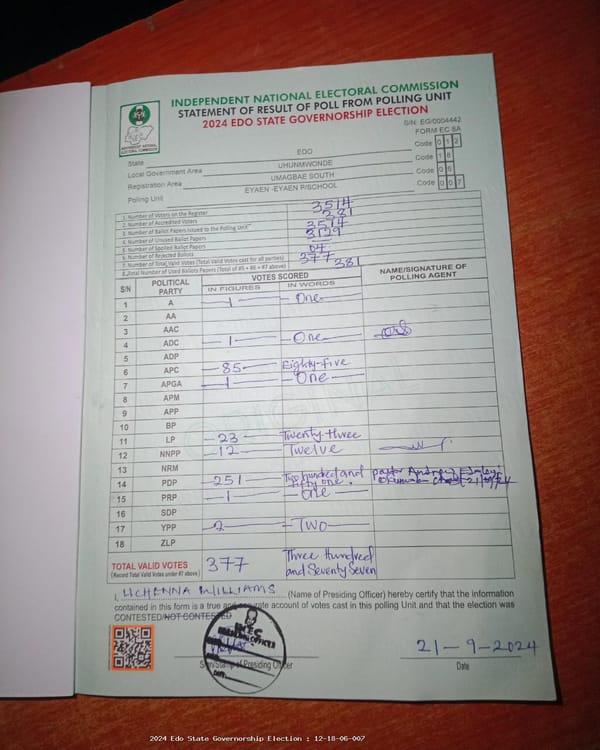 INDEPENDENT NATIONAL ELECTORAL COMMISSION
STATEMENT OF RESULT OF POLL FROM POLLING UNIT
2024 EDO STATE GOVERNORSHIP ELECTION
INDEPENDENT NATIONAL ELECTORAL COMMISSION
S/N: EG/0004442
FORM EC 8A
State EDO Code 0 1 2
Local Government Area UHUNMWONDE Code 1 8
Registration Area UMAGBAE SOUTH Code 0 6
Polling Unit EYAEN -EYAEN P/SCHOOL Code 0 0 7
1. Number of Voters on the Register 3514
2. Number of Accredited Voters 381
3. Number of Ballot Papers Issued to the Polling Unit 3514
4. Number of Unused Ballot Papers
5. Number of Spoiled Ballot Papers
6. Number of Rejected Ballots 04
7. Number of Total Valid Votes (Total Valid Votes cast for all parties) 377
8. Total Number of Used Ballots Papers (Total of #5 + #6 + #7 above) 381
S/N POLITICAL PARTY VOTES SCORED NAME/SIGNATURE OF POLLING AGENT
IN FIGURES IN WORDS
1 A 1 One
2 AA
3 AAC
4 ADC 1 One
5 ADP
6 APC 85 Eighty-five
7 APGA 1 One
8 APM
9 APP
10 BP
11 LP 23 Twenty three
12 NNPP 12 Twelve
13 NRM
14 PDP 251 Two hundred and fifty one.
15 PRP 1 One
16 SDP
17 YPP 2 Two
18 ZLP
TOTAL VALID VOTES 377 Three Hundred and Seventy Seven
(Record Total Valid Votes under #7 above)
I, UCHENNA WILLIAMS (Name of Presiding Officer) hereby certify that the information
contained in this form is a true and accurate account of votes cast in this polling Unit and that the election was
CONTESTED/NOT CONTESTED
INEC
PRESIDING OFFICER
21-9-2024
Sign/Stamp of Presiding Officer Date
2024 Edo State Governorship Election : 12-18-06-007